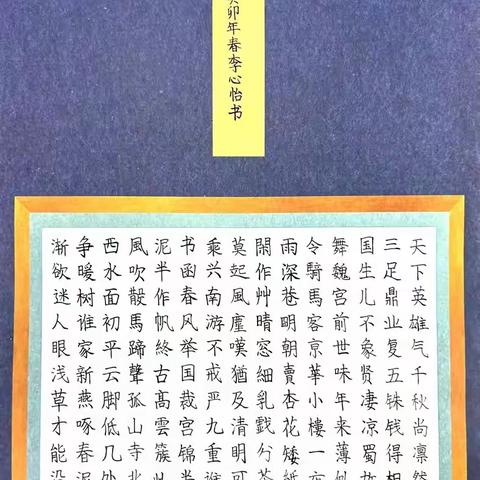 卯年春李心怡书
天下英雄气千秋尚凛然
三足鼎业复五铢钱得相
国生儿不象贤凄凉蜀故
舞魏宫前世味年来薄似
令騎馬客京華小樓一
雨深巷明朝賣杏花矮紙
閑作艸晴窓細乳戲分茶
莫起風塵嘆猶及清明可
乘兴南游不戒严九重谁
书函春风举国裁宫锦半
泥半作帆終古高雲簇此
風吹散馬蹄聲孤山寺北
西水面初平云脚低几处
争暖树谁家新燕啄春泥
渐欲迷人眼浅草才能没